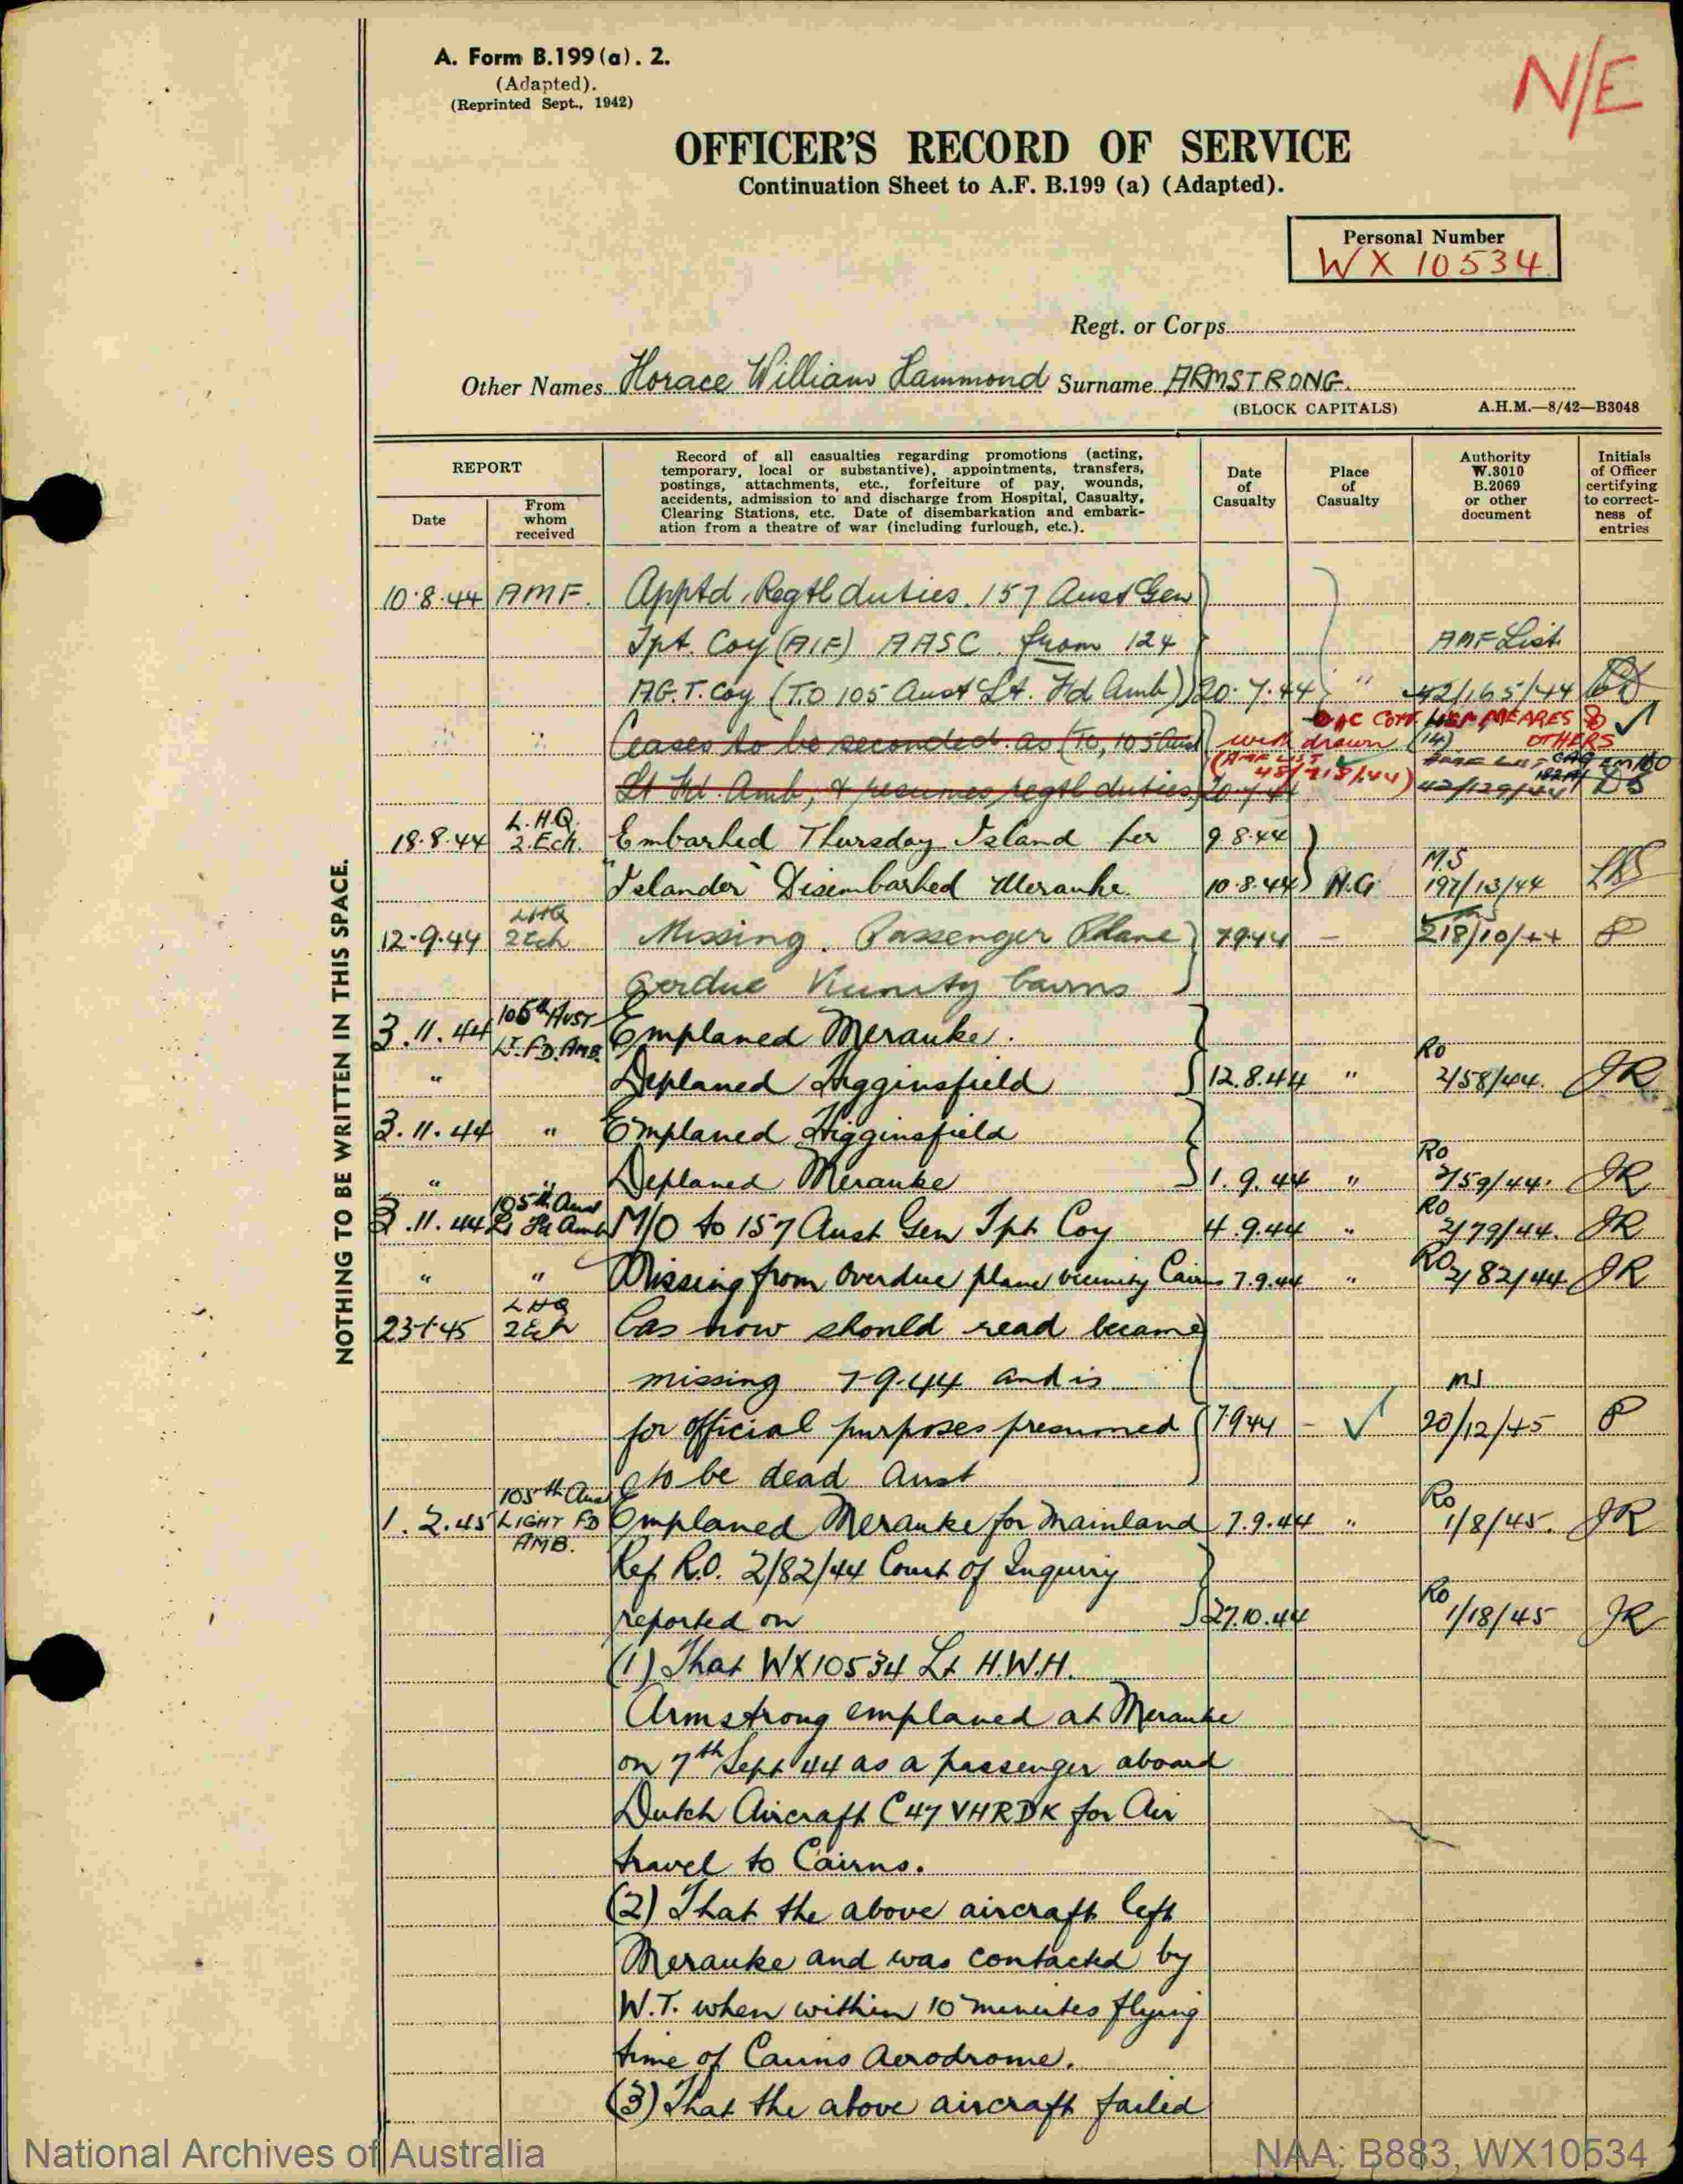 A. Form B.199 (a). 2.
(Adapted).
(Reprinted Sept., 1942)
N/E
OFFICER'S RECORD OF SERVICE
Continuation Sheet to A.F. B.199 (a) (Adapted).
Personal Number
WX 10534
Regt. or Corps
Other Names Horace William Hammond Surname ARMSTRONG
(BLOCK CAPITALS) A.H.M.—8/42—B3048
REPORT
Date
From whom received
Record of all casualties regarding promotions (acting,
temporary, local or substantive), appointments, transfers,
postings, attachments, etc., forfeiture of pay, wounds,
accidents, admission to and discharge from Hospital, Casualty,
Clearing Stations, etc. Date of disembarkation and embark-
ation from a theatre of war (including furlough, etc.).
Date of Casualty
Place of Casualty
Authority W.3010 B.2069 or other document
Initials of Officer certifying to correct- ness of entries
NOTHING TO BE WRITTEN IN THIS SPACE.
10.8.44 AMF. Apptd. Regtl duties. 157 Aust Gen
Tpt. Coy (AIF) AASC. from 124 AMF List
AG.T. Coy (T.O 105 Aust Lt. Fd Amb) 20.7.44 " 42/165/44
Ceases to be seconded as (TO, 105 Aust withdrawn OTHERS
Lt Fd. Amb, & resumes regtl duties 20.7.44
L.H.Q.
18.8.44 2.Ech. Embarked Thursday Island per 9.8.44
"Islander" Disembarked Merauke. 10.8.44 N.G. M.S 197/13/44
LHQ
12.9.44 2Ech Missing. Passenger Plane 7944 – 218/10/44
overdue Vicinity Cairns
3.11.44 105th AUST LT. FD. AMB. Emplaned Merauke.
" Deplaned Higginsfield 12.8.44 " Ro 2/58/44. JR
3.11.44 " Emplaned Higginsfield
" " Deplaned Merauke 1.9.44 " Ro 2/59/44. JR
3.11.44 105th Aust Lt Fd Amb M/O to 157 Aust Gen Tpt Coy 4.9.44 " Ro 2/79/44. JR
" " Missing from overdue plane vicinity Cairns 7.9.44 " RO 2/82/44 JR
LHQ
23-1-45 2Ech Cas now should read became
missing 7-9-44 and is
for official purposes presumed 7944 – MS 20/12/45
to be dead Aust
1.2.45 105th Aust LIGHT FD AMB. Emplaned Merauke for Mainland 7.9.44 " Ro 1/8/45. JR
Ref R.O. 2/82/44 Court of Inquiry
reported on 27.10.44 Ro 1/18/45 JR
(1) That WX10534 Lt H.W.H.
Armstrong emplaned at Merauke
on 7th Sept '44 as a passenger aboard
Dutch Aircraft C47 VHRDK for Air
travel to Cairns.
(2) That the above aircraft left
Merauke and was contacted by
W.T. when within 10 minutes flying
time of Cairns Aerodrome.
(3) That the above aircraft failed
National Archives of Australia
NAA: B883, WX10534